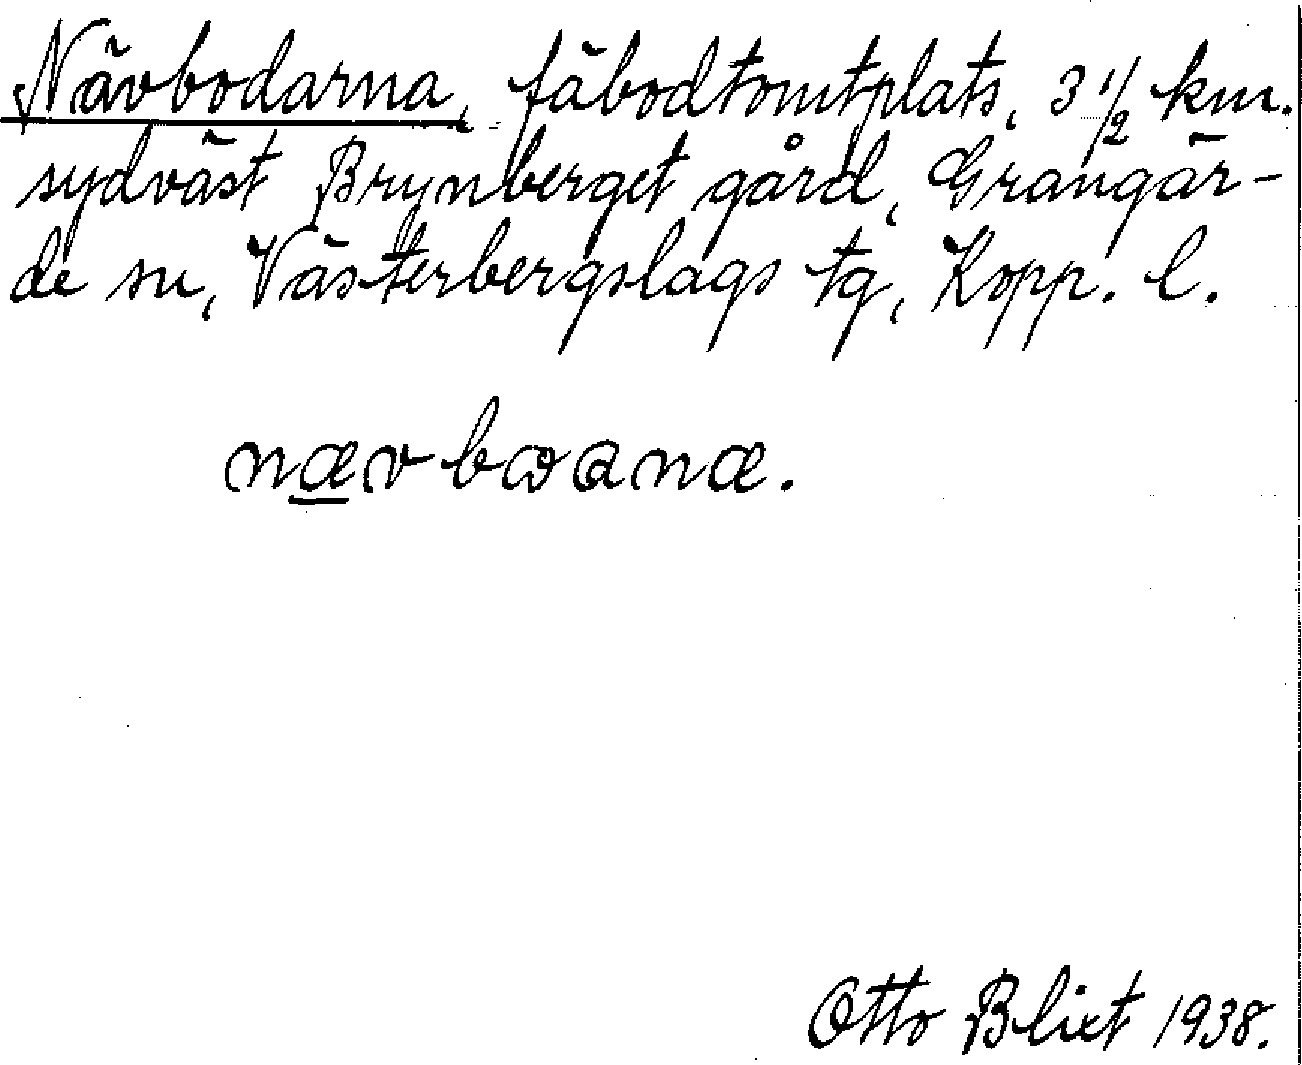 Nävbodarna, fäbodtomtplats, 3 1/2 km.
sydväst Brynberget gård, Grangär-
de sn, Västerbergslags tg, Kopp. l.
nævbωana.
Otto Blixt 1938.